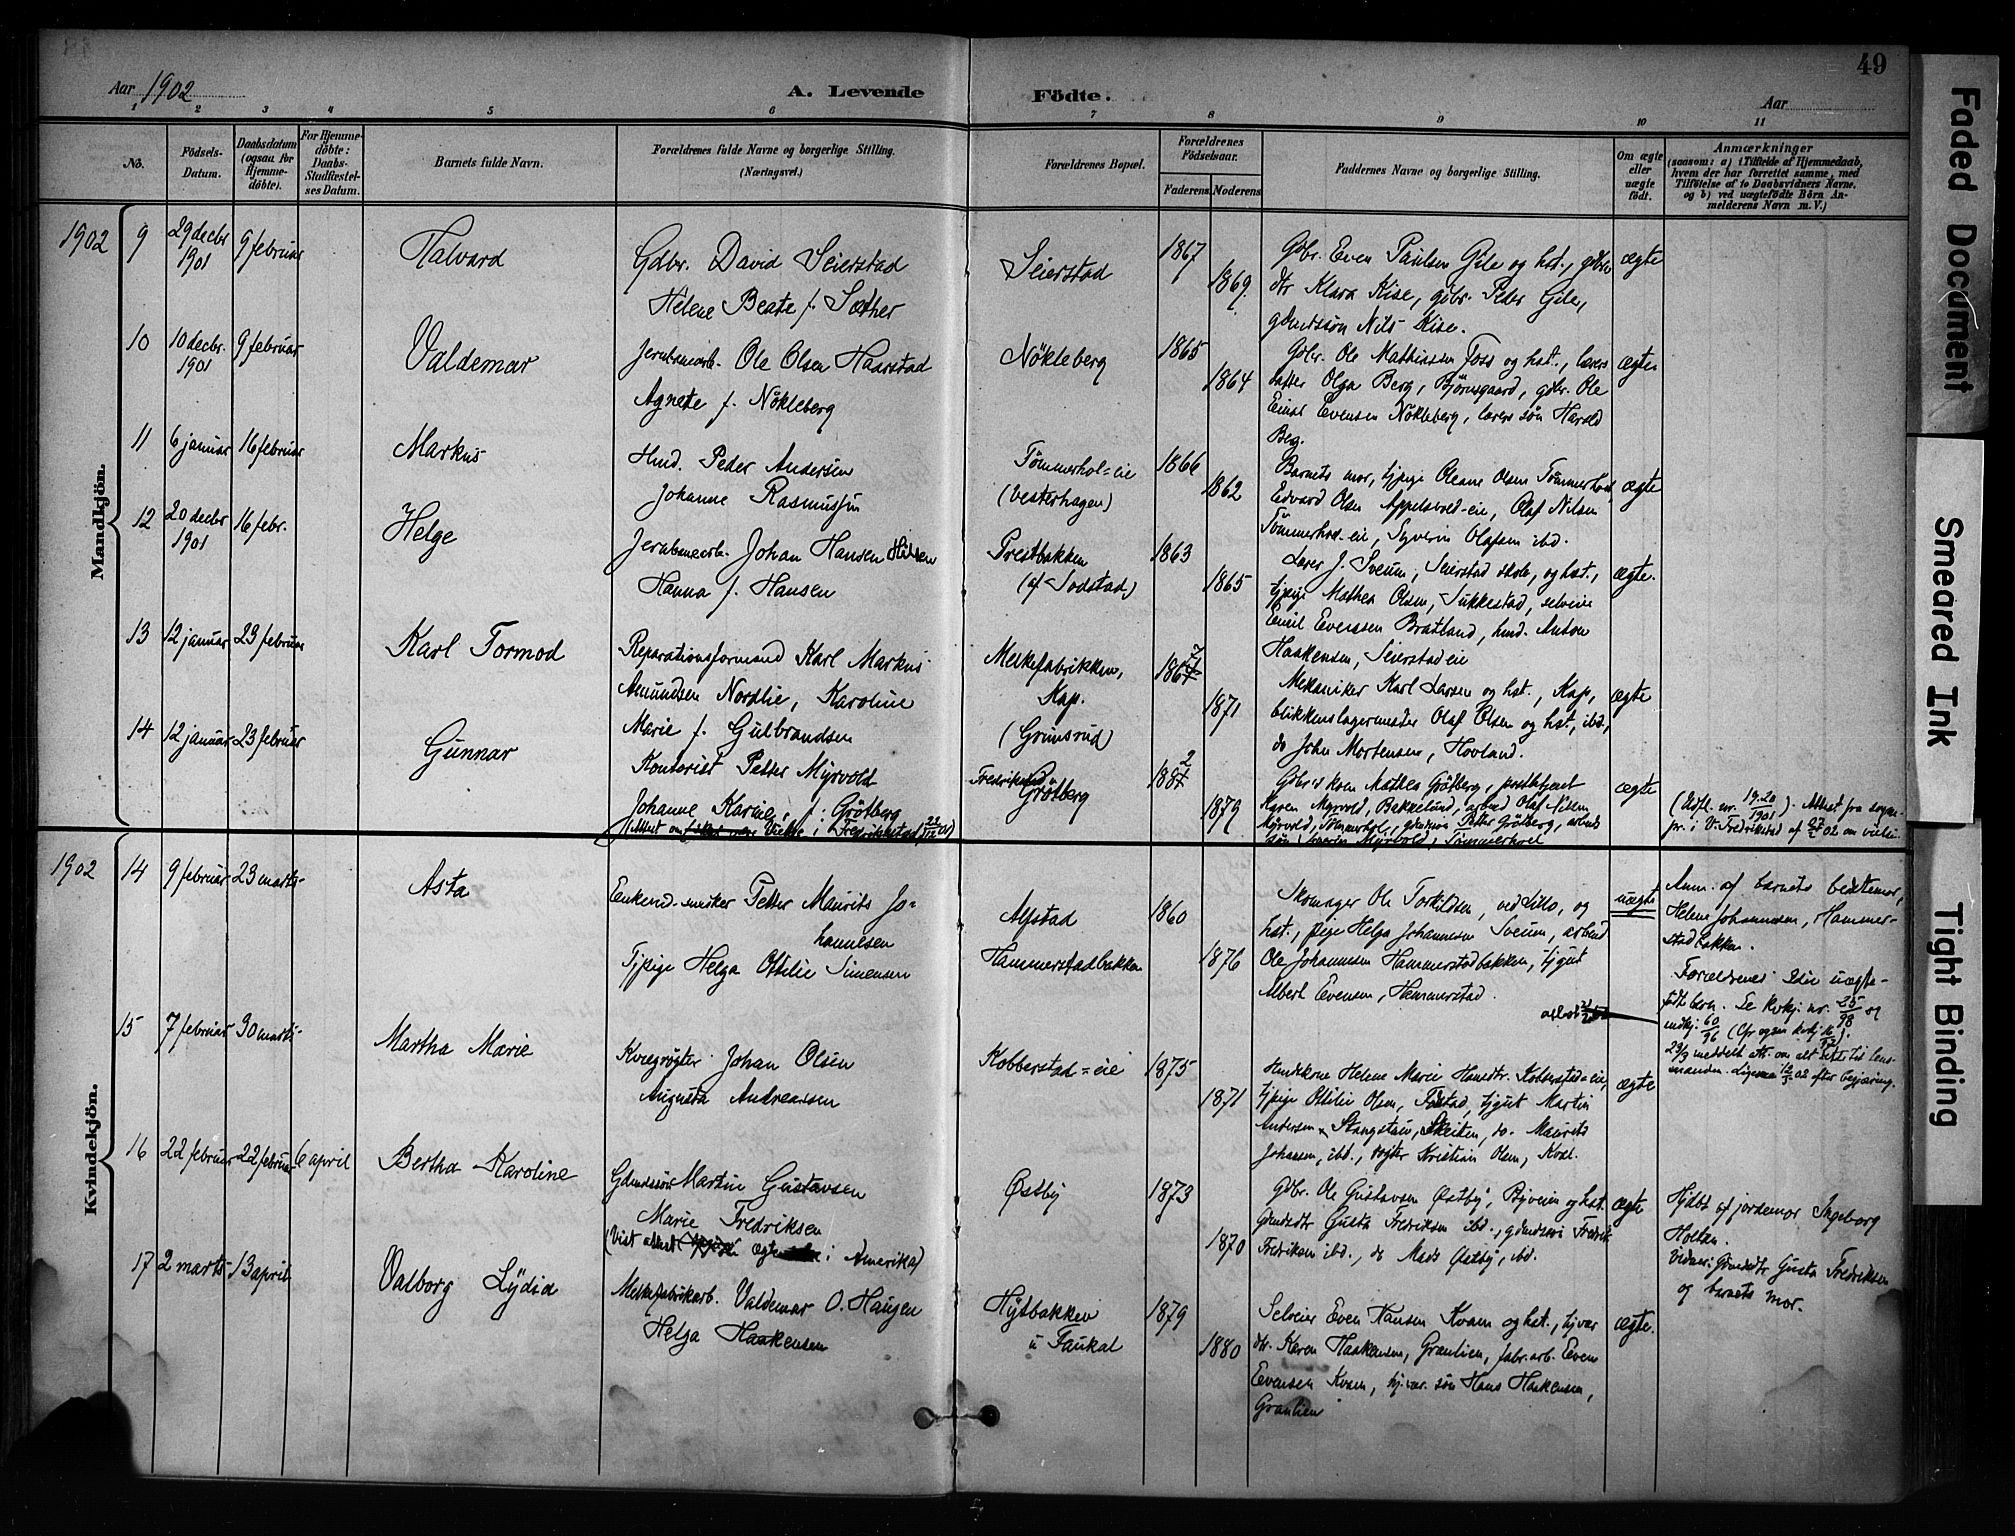 49
Aar 1902 A. Levende Födte. Aar
1 2 3 4 5 6 7 8 9 10 11
No. Födsels-Datum. Daabsdatum (ogsaa for Hjemmedöbte). For Hjemmedöbte: Daabs-Stadfæstelses Datum. Barnets fulde Navn. Forældrenes fulde Navne og borgerlige Stilling. (Næringsvei.) Forældrenes Bopæl. Forældrenes Födselsaar. Faderens Moderens Faddernes Navne og borgerlige Stilling. Om ægte eller uægte födt. Anmærkninger
(saasom: a) i Tilfælde af Hjemmedaab, hvem der har forrettet samme, med Tilföielse af to Daabsvidners Navne, og b) ved uægtefödte Börn Anmelderens Navn m. V.)
Mandkjön.
1902 9 29 decbr 1901 9 februar Halvard
Gdbr. David Seierstad
Helene Beate f. Sæther
Seierstad 1867 1869
Gdbr. Even Paulsen Gile og hst., gdbr
dtr Klara Kise, gdbr. Peder Gile,
gdmdssøn Nils Kise.
ægte
10 10 decbr. 1901 9 februar Valdemar
Jernbanearb. Ole Olsen Haarstad
Agnete f. Nökleberg
Nökleberg 1865 1864
Gdbr. Ole Mathiassen Foss og hst., lærers
datter Olga Berg, Bjørnsgaard, gdbr. Ole
Einar Evensen Nökleberg, lærers søn Harald
Berg.
ægte
11 6 januar 16 februar Markus
Hmd. Peder Andersen
Johanne Rasmussen
Tømmerhol=eie
(Vesterhagen)
1866 1862
Barnets mor, tjpige Oleane Olsen Tömmerhol,
Edvard Olsen Appelsvold-eie, Olaf Nilsen
Tömmerhol-eie, Syverin Olafsen ibd.
ægte
12 20 decbr 1901 16 febr. Helge
Jernbanearb. Johan Hansen
Hanna f. Hansen
Prestbakken
(af Sodstad)
1863 1865
Lærer J. Sveum, Seierstad skole, og hst.,
tjpige Mathea Olsen, Sukkestad, selveier
Emil Evensen Bratland, hmd. Anton
Haakensen, Seierstadeie
ægte.
13 12 januar 23 februar Karl Tormod
Reparationsformand Karl Markus
Amundsen Nordlie, Karoline
Marie f. Gulbrandsen
Melkefabrikken,
Kap.
(Grimsrud)
1867 1871
Mekaniker Karl Larsen og hst., Kap,
blikkenslagermester Olaf Olsen og hst., ibd.,
do John Mortensen, Hovland.
ægte
14 12 januar 23 februar Gunnar
Kontorist Petter Myrvold
Johanne Karine f. Grötberg
Fredrikstad
Grötberg
1882 1879
Gdbr's kone Mathea Grötberg,
Karen Myrvold, Bakkelund, arbmd Olaf Nilsen
Myrvold, Tömmerhol, gdmdssøn Petter Grötberg, arbmds
søn Myrvold, Tömmerhol
ægte
(Udfl. nr. 19.20/1901). Attest fra sogne-
pr. i V. Fredrikstad af 27/2 02 om vielsen
Kvindekjön.
1902 14 9 februar 23 marts Asta
Enkemd. snedker Petter Maurits Jo-
hannesen
Tjpige Helga Ottilie Simensen
Alfstad
Hammerstadbakken
1860 1876
Skomager Ole Torkildsen, ved Lillo, og
hst., pige Helga Johannesen Sveum, arbmd
Ole Johannesen Hammerstadbakken, tjgut
Albert Evensen, Hammerstad.
uægte
Anm. af barnets bedstemor,
Helene Johannesen, Hammer-
stadbakken.
Forældrenes 3die uægte-
födte barn. Se kvkj. nr. 25/98 og
mdkj. 60/96
23/3 meddelt att. om alt dette til lens-
manden. 02 efter begjæring.
15 7 februar 30 marts Martha Marie
Kvægrøgter Johan Olsen
Augusta Andreassen
Kobberstad=eie 1875 1871
Husmdskone Helene Marie Hansdtr. Kobberstad=eie,
tjpige Ottilie Olsen, tjgut Martin
Andersen Stangstuen, Skeiten, do. Maurits
Johansen, ibd., røgter Kristian Olsen, Kval.
ægte
16 22 februar 22 februar 6 april Bertha Karoline
Gdmdssön Martin Gustavsen
Marie Fredriksen
(Vist attest i Amerika)
Østby 1873 1870
Gdbr. Ole Gustavsen Østby, Byveien og hst.
Gdmdsdtr Gusta Fredriksen ibd., gdmdssøn Fredrik
Fredriksen ibd., do Mads Østby, ibd.
ægte
Hjdbt af jordemor Ingeborg
Holtan.
Vidner: Gdmdsdtr Gusta Fredriksen
og barnets mor.
17 2 marts 13 april Valborg Lydia
Melkefabrikarb. Valdemar O. Haugen
Helga Haakensen
Hytbakken
u Faukal
1879 1880
Selveier Even Hansen Kvam og hst., tj.var
dtr. Karen Haakensen, Grænlien, fabr.arb. Even
Evensen Kvam, tj.var. søn Hans Haakensen,
Grænlien
ægte.
Faded Document
Smeared Ink
Tight Binding